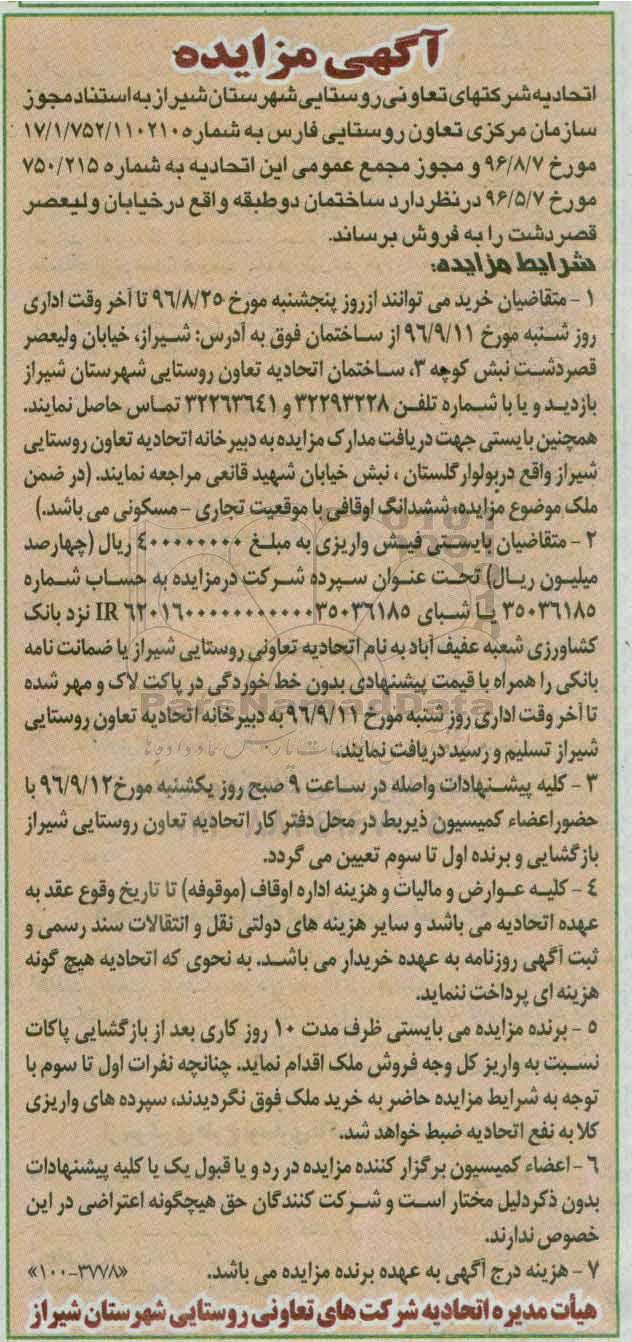 آگهی مزایده
اتحادیه شرکتهای تعاونی روستایی شهرستان شیراز به استناد مجوز
سازمان مرکزی تعاون روستایی فارس به شماره ۱۷/۱/۷۵۲/۱۱۰۲۱۰
مورخ ۹۶/۸/۷ و مجوز مجمع عمومی این اتحادیه به شماره ۷۵۰/۲۱۵
مورخ ۹۶/۵/۷ در نظر دارد ساختمان دو طبقه واقع در خیابان ولیعصر
قصردشت را به فروش برساند.
شرایط مزایده:
۱ - متقاضیان خرید می توانند از روز پنجشنبه مورخ ۹۶/۸/۲۵ تا آخر وقت اداری
روز شنبه مورخ ۹۶/۹/۱۱ از ساختمان فوق به آدرس: شیراز، خیابان ولیعصر
قصردشت نبش کوچه ۳، ساختمان اتحادیه تعاون روستایی شهرستان شیراز
بازدید و یا با شماره تلفن ۳۲۲۹۳۲۲۸ و ۳۲۲۶۳۶۴۱ تماس حاصل نمایند.
همچنین بایستی جهت دریافت مدارک مزایده به دبیرخانه اتحادیه تعاون روستایی
شیراز واقع در بولوار گلستان ، نبش خیابان شهید قانعی مراجعه نمایند. (در ضمن
ملک موضوع مزایده، ششدانگ اوقافی با موقعیت تجاری - مسکونی می باشد.)
۲ - متقاضیان بایستی فیش واریزی به مبلغ ۴۰۰۰۰۰۰۰۰ ریال (چهارصد
میلیون ریال) تحت عنوان سپرده شرکت در مزایده به حساب شماره
۳۵۰۳۶۱۸۵ یا شبای IR ۶۲۰۱۶۰۰۰۰۰۰۰۰۰۰۰۰۳۵۰۳۶۱۸۵ نزد بانک
کشاورزی شعبه عفیف آباد به نام اتحادیه تعاونی روستایی شیراز یا ضمانت نامه
بانکی را همراه با قیمت پیشنهادی بدون خط خوردگی در پاکت لاک و مهر شده
تا آخر وقت اداری روز شنبه مورخ ۹۶/۹/۱۱ به دبیرخانه اتحادیه تعاون روستایی
شیراز تسلیم و رسید دریافت نمایند.
۳ - کلیه پیشنهادات واصله در ساعت ۹ صبح روز یکشنبه مورخ ۹۶/۹/۱۲ با
حضور اعضاء کمیسیون ذیربط در محل دفتر کار اتحادیه تعاون روستایی شیراز
بازگشایی و برنده اول تا سوم تعیین می گردد.
۴ - کلیه عوارض و مالیات و هزینه اداره اوقاف (موقوفه) تا تاریخ وقوع عقد به
عهده اتحادیه می باشد و سایر هزینه های دولتی نقل و انتقالات سند رسمی و
ثبت آگهی روزنامه به عهده خریدار می باشد. به نحوی که اتحادیه هیچ گونه
هزینه ای پرداخت ننماید.
۵ - برنده مزایده می بایستی ظرف مدت ۱۰ روز کاری بعد از بازگشایی پاکات
نسبت به واریز کل وجه فروش ملک اقدام نماید. چنانچه نفرات اول تا سوم با
توجه به شرایط مزایده حاضر به خرید ملک فوق نگردیدند، سپرده های واریزی
کلا به نفع اتحادیه ضبط خواهد شد.
۶ - اعضاء کمیسیون برگزار کننده مزایده در رد و یا قبول یک یا کلیه پیشنهادات
بدون ذکر دلیل مختار است و شرکت کنندگان حق هیچگونه اعتراضی در این
خصوص ندارند.
۷ - هزینه درج آگهی به عهده برنده مزایده می باشد. «۱۰۰-۳۷۷۸»
هیأت مدیره اتحادیه شرکت های تعاونی روستایی شهرستان شیراز